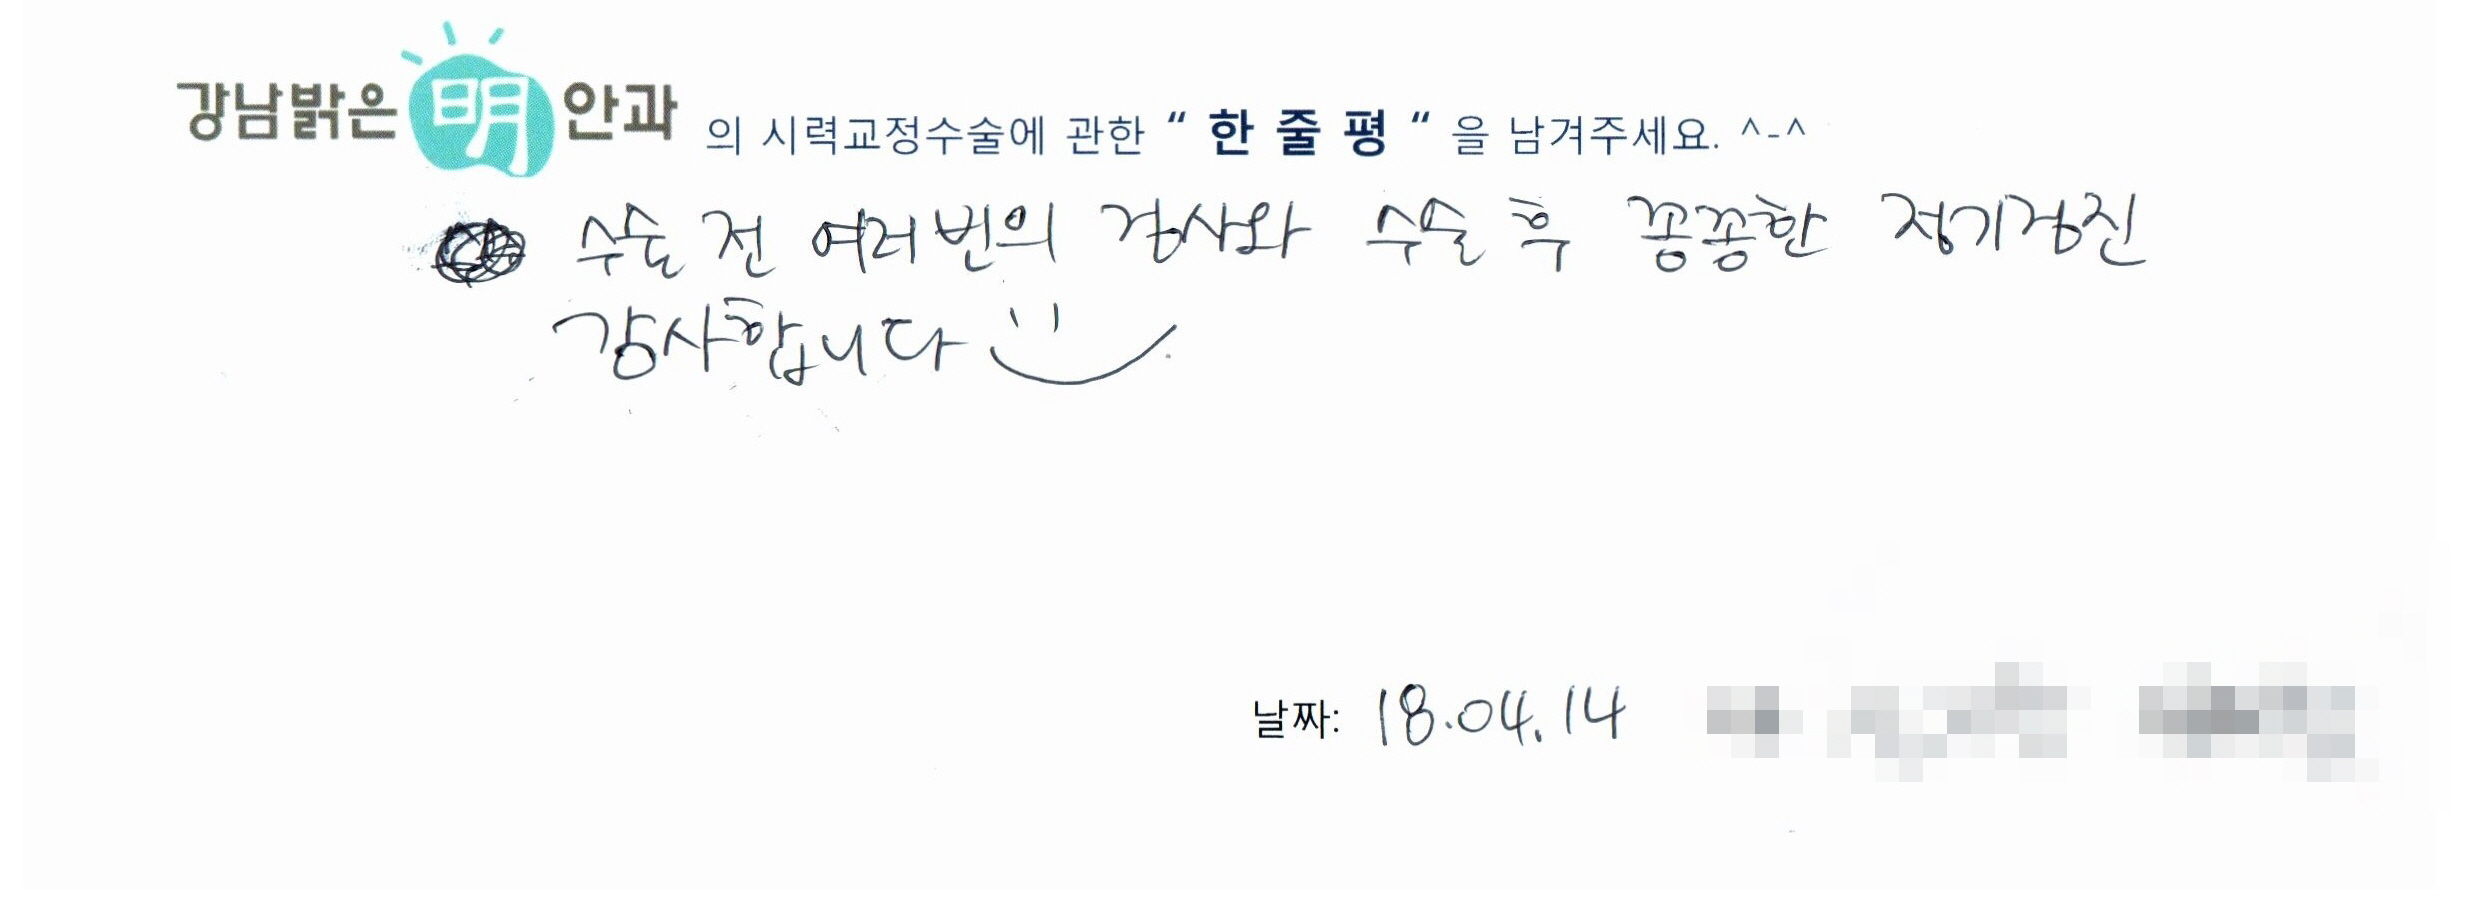 강남밝은 明 안과 의 시력교정수술에 관한 “ 한 줄 평 “ 을 남겨주세요. ^-^
수술 전 여러번의 검사와 수술 후 꼼꼼한 정기검진
감사합니다
날짜: 18.04.14